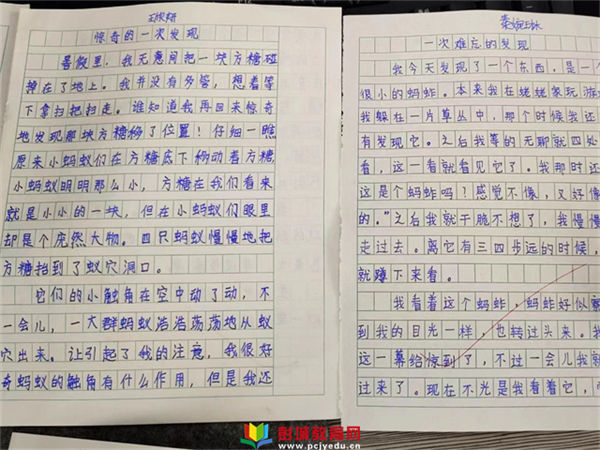 惊奇的一次发现
暑假里,我无意间把一块方糖碰
掉在了地上。我并没有多管,想着等
下拿扫把扫走。谁知道我再回来惊奇
地发现那块方糖移了位置!仔细一瞧
原来小蚂蚁们在方糖底下移动着方糖,
小蚂蚁明明那么小,方糖在我们看来
就是小小的一块,但在小蚂蚁们眼里
却是个庞然大物。四只蚂蚁慢慢地把
方糖抬到了蚁穴洞口。
它们的小触角在空中动了动,不
一会儿,一大群蚂蚁浩浩荡荡地从蚁
穴出来。让引起了我的注意,我很好
奇蚂蚁的触角有什么作用,但是我还
一次难忘的发现
我今天发现了一个东西,是一个
很小的蚂蚱。本来我在姥姥家玩游
我躲在一片草丛中,那个时候我还
有发现它。之后我等的无聊就四处
看,这一看就看见它了。我那时还
这是个蚂蚱吗?感觉不像,又好像
的。”之后我就干脆不想了,我慢慢
走过去。离它有三四步远的时候,
就蹲下来看。
我看着这个蚂蚱,蚂蚱好似察
到我的目光一样,也转过头来。我
这一幕给惊到了,不过一会儿我就
过来了。现在不光是我看着它,
耐城教育网
www.pcjyedu.cn